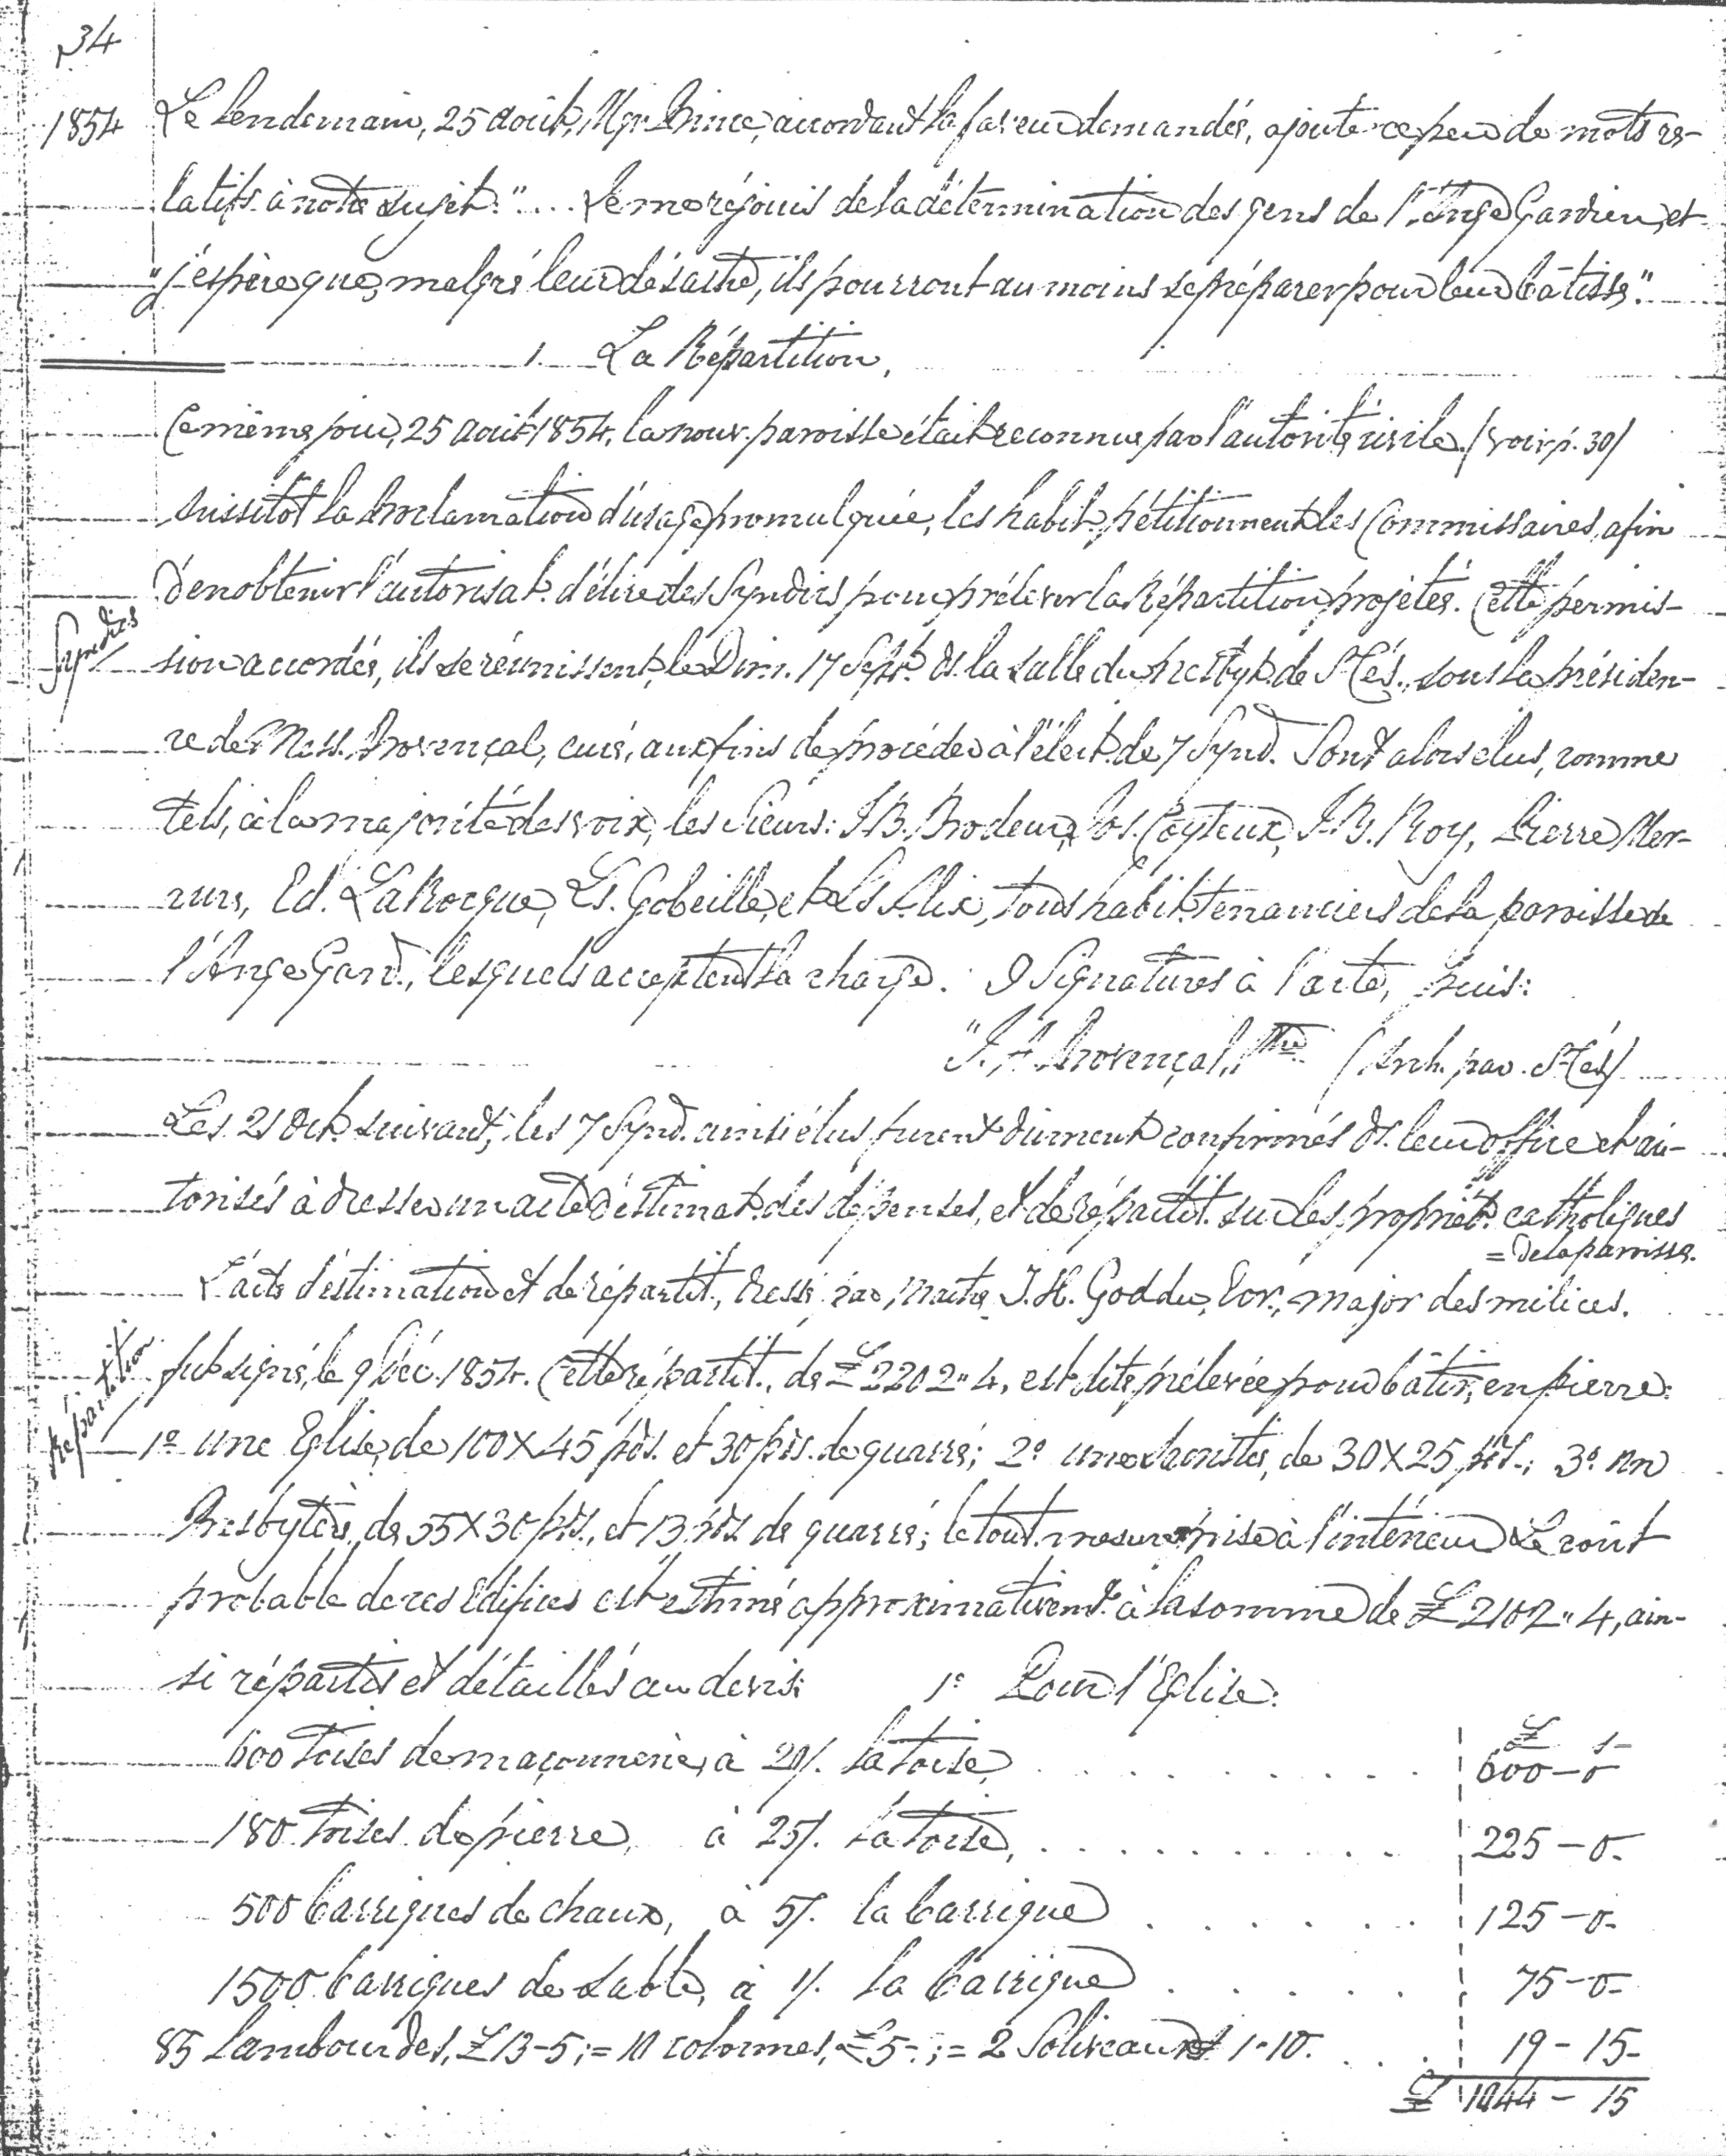 34
1854 Le lendemain, 25 août, Mgr Prince, accordant la faveur demandée, ajoute ce peu de mots re-
latifs à notre sujet: " .... Je me réjouis de la détermination des gens de l'Ange Gardien, et
" j'espère que, malgré leur désastre, ils pourront au moins se préparer pour leur bâtisse."
1. La Répartition.
Ce même jour, 25 août 1854, la nouv. paroisse était reconnue par l'autorité civile. (voir p. 30)
Aussitôt la Proclamation d'usage promulguée, les habit. pétitionnent les Commissaires, afin
d'en obtenir l'autorisat. d'élire des Syndics pour prélever la Répartition projetée. Cette permis-
Syndics
sion accordée, ils se réunissent, le Dim. 17 Sept. ds. la salle du presbyt. de St Cés., sous la présiden-
ce de Mess. Provençal, curé, aux fins de procéder à l'élect. de 7 Synd. Sont alors élus, comme
tels, à la majorité des voix, les Sieurs: J.B. Brodeur, Jos. Coyteux, J.B. Roy, Pierre Mer-
cure, Ed. LaRocque, Ls. Gobeille, et Ls Alix, tous habit. tenanciers de la paroisse de
l'Ange Gard., lesquels acceptent la charge. 9 Signatures à l'acte, puis:
" J. A. Provençal, Ptre (Arch. par. St Cés)
Les 21 Oct. suivant, les 7 Synd. ainsi élus furent dûment confirmés ds. leur office et au-
torisés à dresser un acte d'estimat. des dépenses, et de répartit. sur les propriét. catholiques
= de la paroisse.
L'acte d'estimation et de répartit., dressé par Maître J. H. Goddu, Ecr., major des milices.
Répartition
fut signé, le 9 Déc. 1854. Cette répartit., de £ 2202 " 4, est dite prélevée pour bâtir, en pierre:
1º une Eglise, de 100 X 45 pds. et 30 pds. de quarré; 2º une sacristie, de 30 X 25 pds.; 3º un
Presbytère, de 55 X 30 pds., et 13 pds de quarré; le tout mesure prise à l'intérieur. Le coût
probable de ces édifices est estimé approximativemt. à la somme de £ 2102 " 4, ain-
si répartis et détaillés au devis: 1º Pour l'Eglise.
£ s-
600 Toises de maçonnerie, à 20/. la toise, . . . . . . . . . . 600 – 0
180 Toises de pierre, à 25/. la toise, . . . . . . . . . . . 225 – 0-
500 barriques de chaux, à 5/. la barrique . . . . . . 125 – 0-
1500 barriques de sable, à 1/. la barrique . . . . . . 75 – 0-
85 Lambourdes, £ 13-5; = 10 colonnes, £ 5-; = 2 Soliveaux £ 1-10. . . . 19 – 15-
£ 1044 – 15